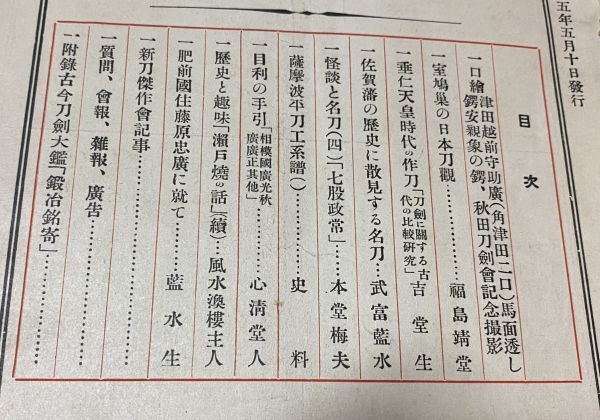 五年五月十日發行
目次
一口繪 津田越前守助廣(角津田二口)馬面透し
鍔安親象の鍔、秋田刀劍會記念撮影
一室鳩巢の日本刀觀…………福島靖堂
一垂仁天皇時代の作刀「刀劍に關する古
代の比較研究」吉堂生
一佐賀藩の歷史に散見する名刀…武富藍水
一怪談と名刀(四)「七股政常」…本堂梅夫
一薩摩波平刀工系譜(一)…………史料
一目利の手引「相模國廣光秋
廣廣正其他」…………心清堂人
一歷史と趣味「瀨戶燒の話」(續)…風水渙樓主人
一肥前國住藤原忠廣に就て…………藍水生
一新刀傑作會記事…………
一質問、會報、雜報、廣告…………
一附錄古今刀劍大鑑「鍛冶銘寄」…………